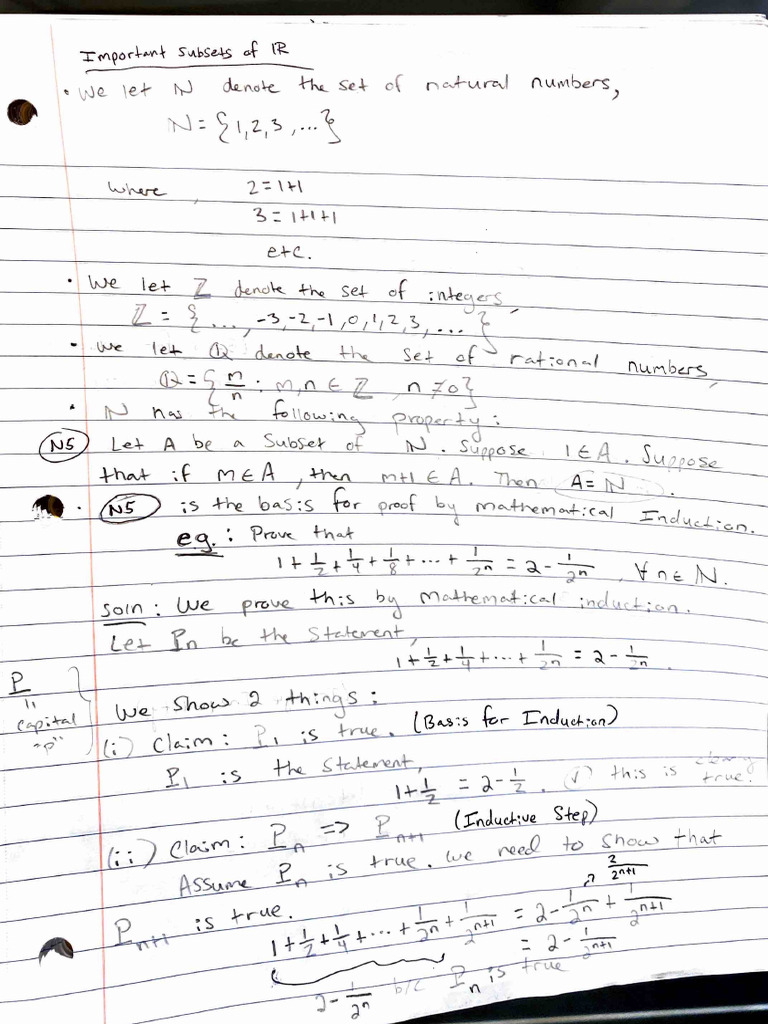 Important Subsets of ℝ
• We let ℕ denote the set of natural numbers,
ℕ = {1, 2, 3, ...}
where 2 = 1+1
3 = 1+1+1
etc.
• We let ℤ denote the set of integers,
ℤ = {..., -3, -2, -1, 0, 1, 2, 3, ...}
• We let ℚ denote the set of rational numbers,
ℚ = {m/n : m, n ∈ ℤ, n ≠ 0}
• ℕ has the following property:
(N5) Let A be a subset of ℕ. Suppose 1 ∈ A. Suppose
that if m ∈ A, then m+1 ∈ A. Then A = ℕ.
• (N5) is the basis for proof by mathematical Induction.
e.g.: Prove that
1 + 1/2 + 1/4 + 1/8 + ... + 1/2^n = 2 - 1/2^n, ∀ n ∈ ℕ.
soln: We prove this by mathematical induction.
Let Pn be the statement,
1 + 1/2 + 1/4 + ... + 1/2^n = 2 - 1/2^n.
P
"
capital
"P"
We show 2 things:
(i) Claim: P1 is true. (Basis for Induction)
P1 is the statement,
1 + 1/2 = 2 - 1/2. (√) this is clearly true.
(ii) Claim: Pn => Pn+1 (Inductive Step)
Assume Pn is true. We need to show that
Pn+1 is true.
2/2^(n+1)
1 + 1/2 + 1/4 + ... + 1/2^n + 1/2^(n+1) = 2 - 1/2^n + 1/2^(n+1)
= 2 - 1/2^(n+1)
2 - 1/2^n b/c Pn is true